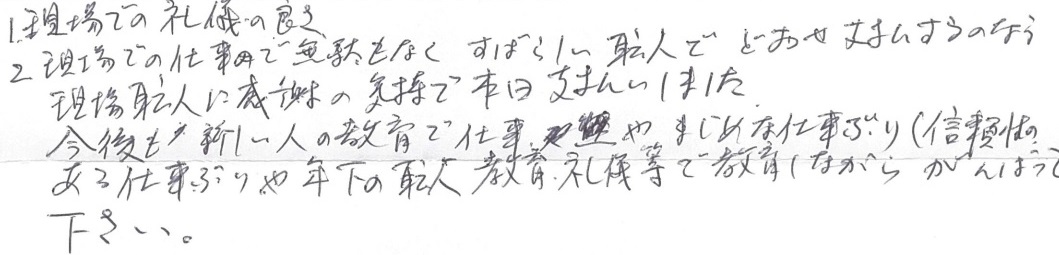 1.現場での礼儀の良さ
2.現場での仕事内で無駄もなく すばらしい職人で どおせ支払するのなら
現場職人に感謝の気持で本日支払いしました
今後も 新しい人の教育で仕事 や まじめな仕事ぶり(信頼性の
ある仕事ぶりや年下の職人 教育.礼儀等で教育しながら がんばって
下さい。